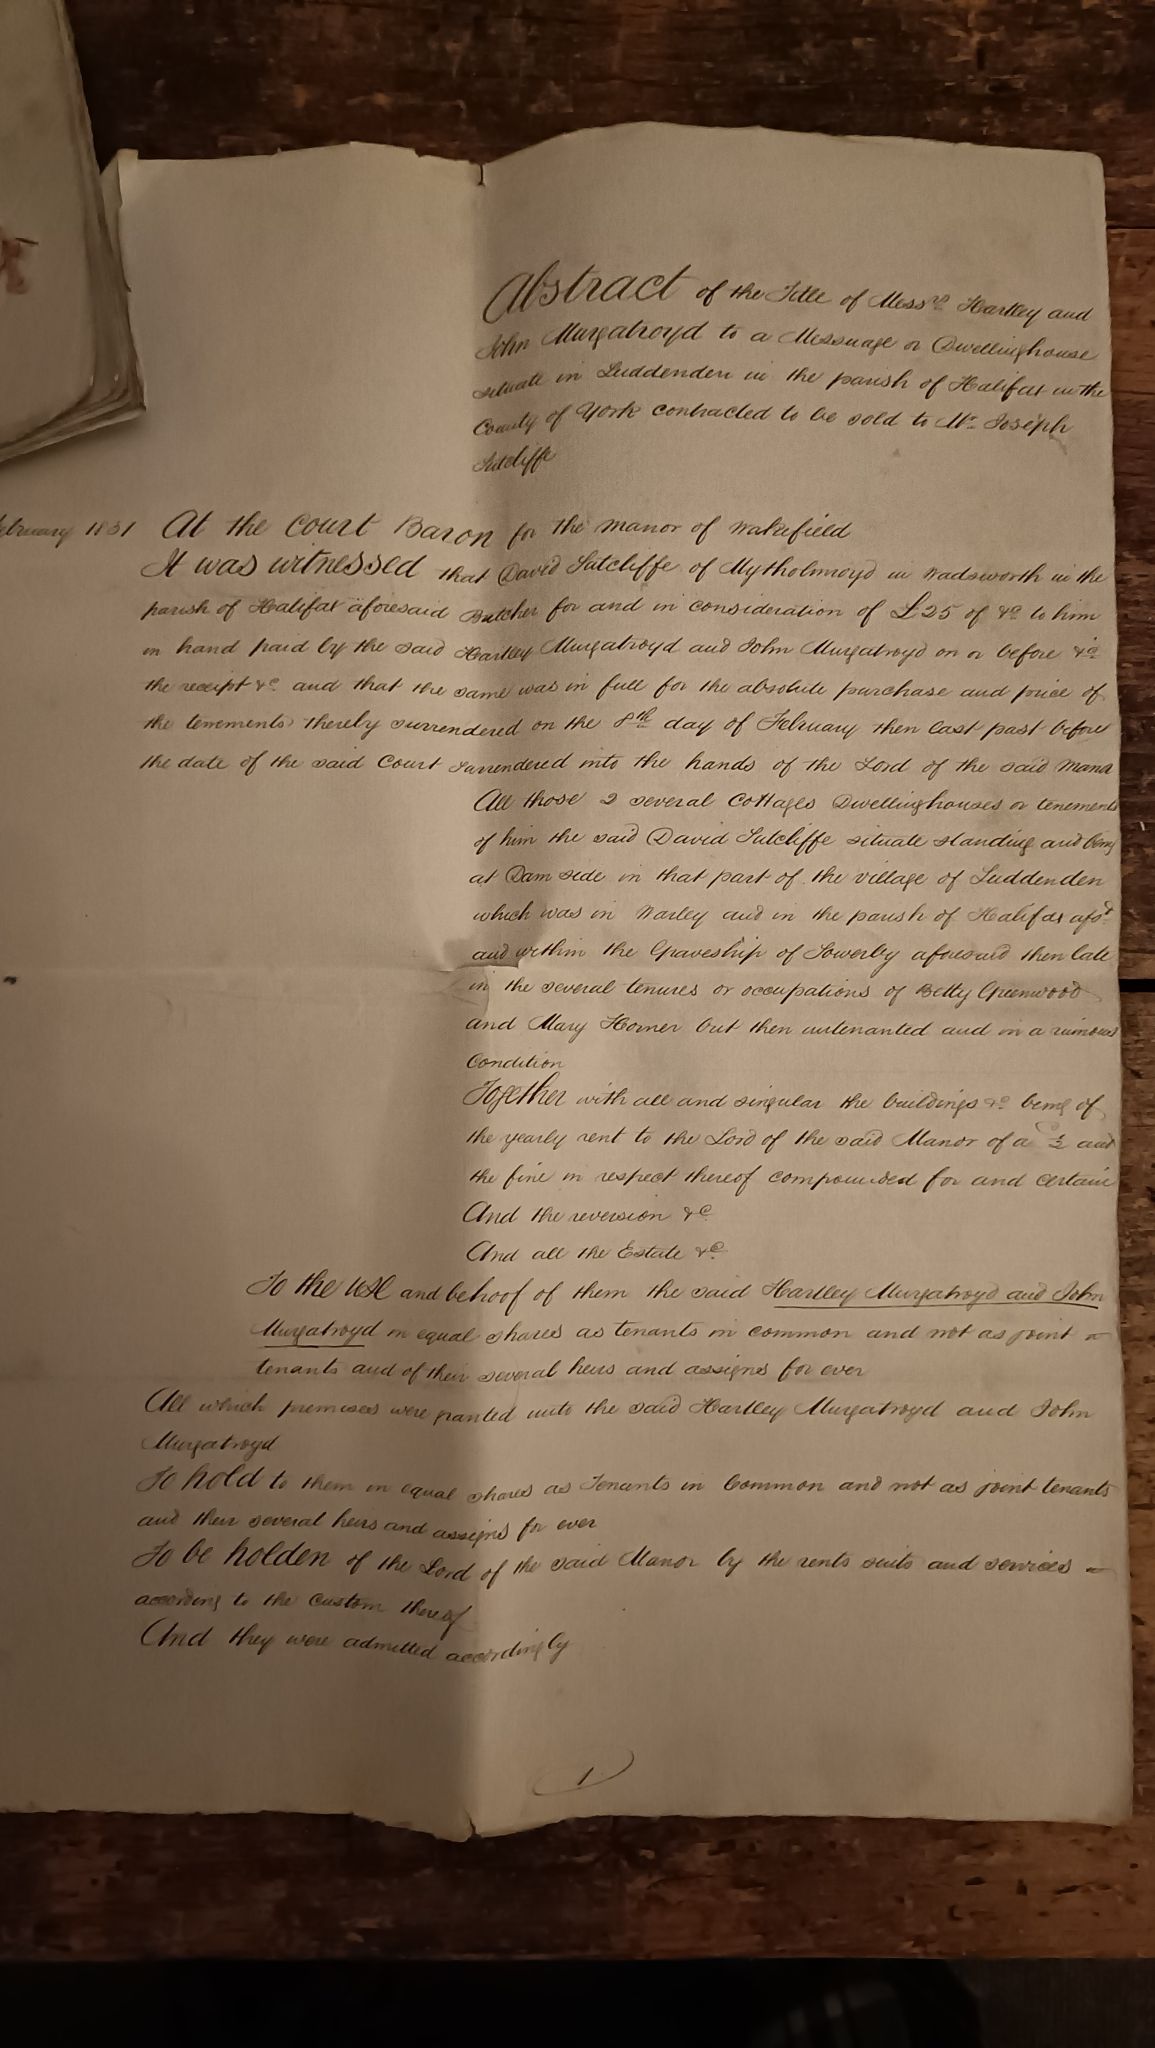 Abstract of the Title of Messrs Hartley and
John Murgatroyd to a Messuage or Dwellinghouse
situate in Luddenden in the parish of Halifax in the
County of York contracted to be sold to Mr. Joseph
Sutcliffe
February 1831 At the Court Baron for the Manor of Wakefield
It was witnessed that David Sutcliffe of Mytholmroyd in Wadsworth in the
parish of Halifax aforesaid Butcher for and in consideration of £25 of &c to him
in hand paid by the said Hartley Murgatroyd and John Murgatroyd on or before &c
the receipt &c and that the same was in full for the absolute purchase and price of
the tenements thereby surrendered on the 8th day of February then last past before
the date of the said Court Surrendered into the hands of the Lord of the said Manor
All those 2 several Cottages Dwellinghouses or tenements
of him the said David Sutcliffe situate standing and being
at Dam side in that part of the village of Luddenden
which was in Warley and in the parish of Halifax afsd
and within the Graveship of Sowerby aforesaid then late
in the several tenures or occupations of Betty Greenwood
and Mary Horner but then untenanted and in a ruinous
condition
Together with all and singular the buildings &c being of
the yearly rent to the Lord of the said Manor of a ½ and
the fine in respect thereof compounded for and certain
And the reversion &c
And all the Estate &c
To the use and behoof of them the said Hartley Murgatroyd and John
Murgatroyd in equal shares as tenants in common and not as joint
tenants and of their several heirs and assigns for ever
All which premises were granted unto the said Hartley Murgatroyd and John
Murgatroyd
To hold to them in equal shares as Tenants in Common and not as joint tenants
and their several heirs and assigns for ever
To be holden of the Lord of the said Manor by the rents suits and services
according to the Custom thereof
And they were admitted accordingly
1